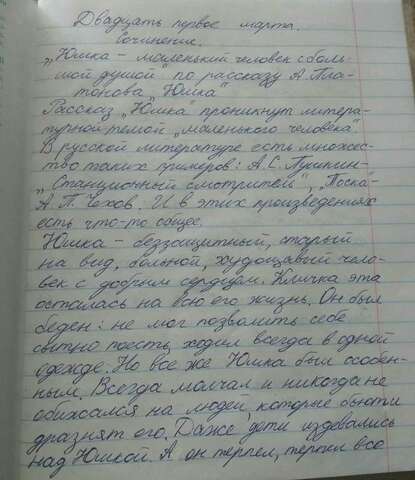 Двадцать первое марта.
Сочинение.
„Юшка – маленький человек с боль-
шой душой" по рассказу А. Пла-
тонова „Юшка"
Рассказ „Юшка" проникнут литера-
турной темой „маленького человека".
В русской литературе есть множес-
во таких примеров: А.С. Пушкин-
„Станционный смотритель", „Тоска"-
А. П. Чехов. И в этих произведениях
есть что-то общее.
Юшка – беззащитный, старый
на вид, больной, худощавый чело-
век с добрым сердцем. Кличка эта
осталась на всю его жизнь. Он был
беден: не мог позволить себе
сытно поесть, ходил всегда в одной
одежде. Но все же Юшка был особен-
ным. Всегда молчал и никогда не
обижался на людей, которые бьют и
дразнят его. Даже дети издевались
над Юшкой. А он терпел, терпел все